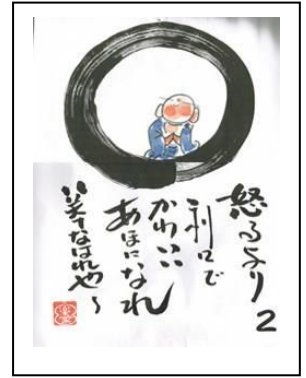 怒るより
利口で
かわいい
あほになれ
笑てなはれや〜
2